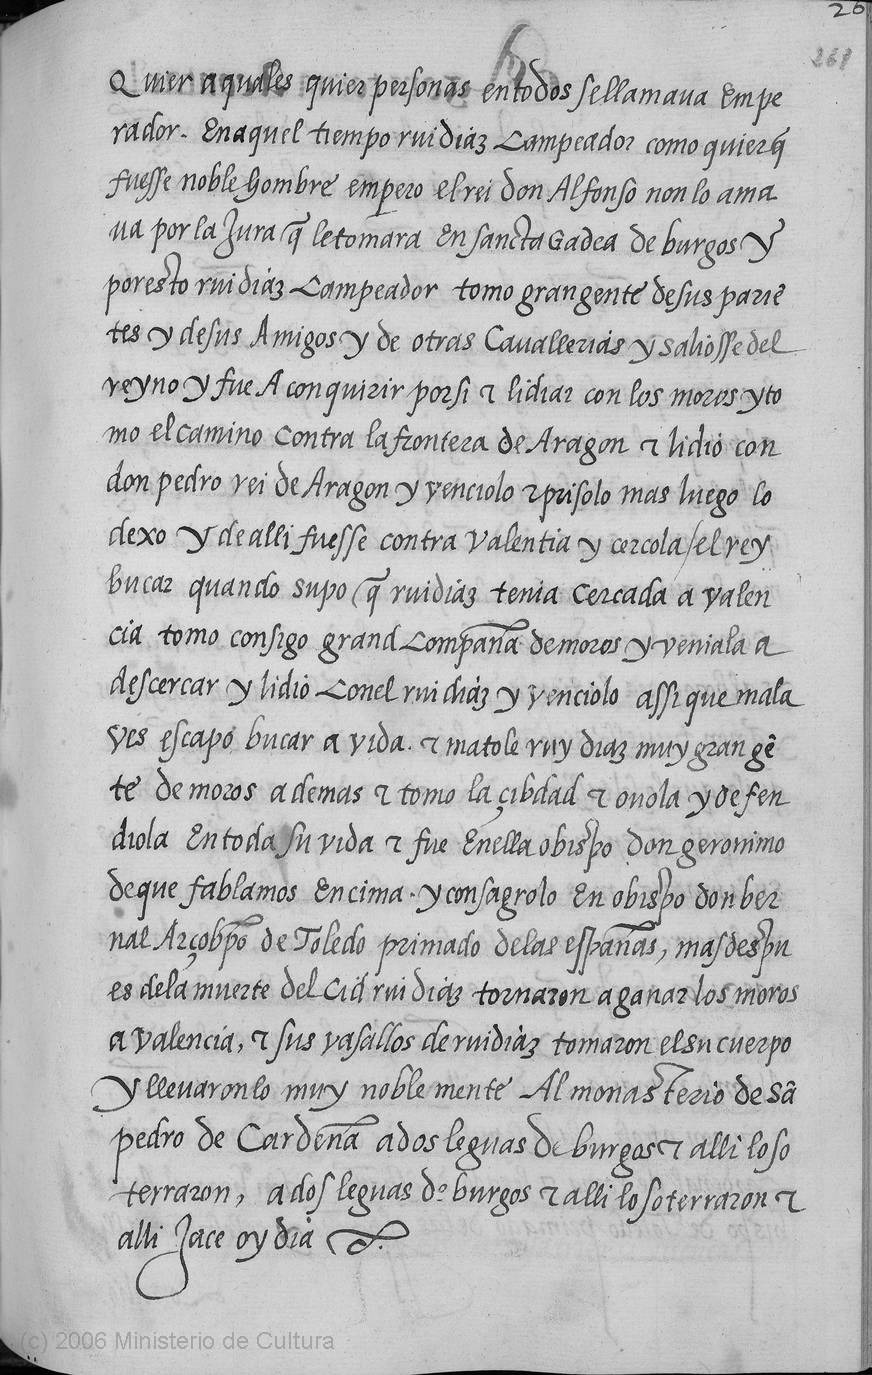 26
268
Quier a quales quier personas en todos se llamaua Empe
rador. En aquel tiempo rui diáz Campeador como quier q̃
fuesse noble hombre empero el rei don Alfonso non lo ama
ua por la Jura q̃ le tomara En sancta Gadea de burgos Y
por esto rui diáz Campeador tomo gran gente de sus pariẽ
tes y de sus Amigos y de otras Cauallerias y saliosse del
reyno y fue A conquirir por si ⁊ lidiar con los moros y to
mo el camino Contra la frontera de Aragon ⁊ lidió con
don pedro rei de Aragon y venciolo ⁊ prisolo mas luego lo
dexo y de alli fuesse contra Valentia y cercola / el rey
bucar quando supo q̃ rui diáz tenia Cercada a valen
cia tomo consigo grand Compan̄a de moros y veniala a
descercar y lidió Conel rui diáz y venciolo assi que mala
ves escapó bucar a vida. ⁊ matole ruy diaz muy gran gẽ
te de moros ademas ⁊ tomo la çibdad ⁊ ouola y defen
diola En toda su vida ⁊ fue En ella obispo don geronimo
de que fablamos Encima. y consagrolo En obispo don ber
nal Arçobp̃o de Toledo primado de las espan̄as, mas despu
es dela muerte del Cid rui diáz tornaron a ganar los moros
a Valencia, ⁊ sus vasallos de rui diáz tomaron el su cuerpo
y lleuaronlo muy noble mente Al monasterio de sã
pedro de Carden̄a a dos leguas de burgos ⁊ alli lo so
terraron, a dos leguas dº burgos ⁊ alli lo soterraron ⁊
alli Jace oy dia
(c) 2006 Ministerio de Cultura